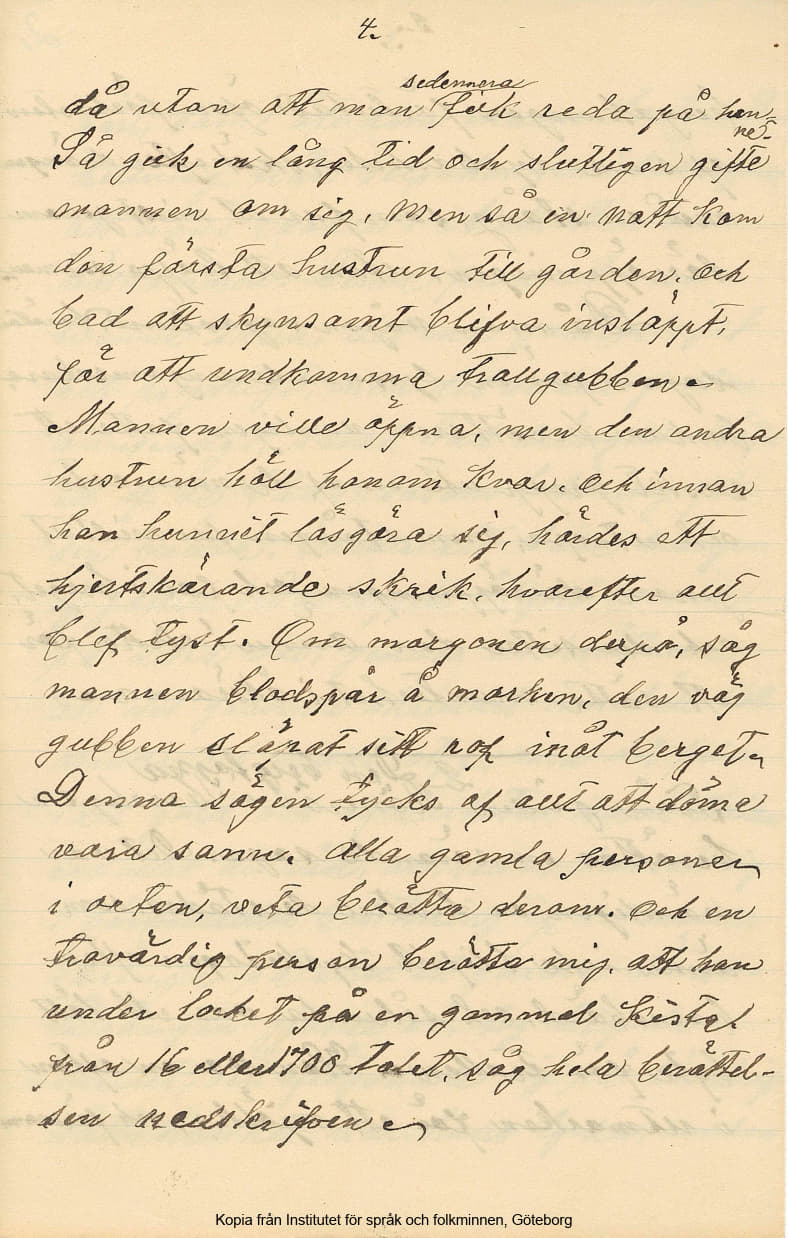 4.
sedermera
då utan att man fick reda på hen-
ne.
Så gick en lång tid och slutligen gifte
mannen om sig, men så en natt kom
den första hustrun till gården, och
bad att skynsamt blifva insläppt,
för att undkomma trollgubben.
Mannen ville öppna, men den andra
hustrun höll honom kvar. Och innan
han hunnit lösgöra sig, hördes ett
hjertskärande skrik, hvarefter allt
blef tyst. Om morgonen derpå, såg
mannen blodspår å marken, den väg
gubben släpat sitt rof inåt berget.
Denna sägen tycks af allt att döma
vara sann. Alla gamla personer
i orten, veta berätta derom. Och en
trovärdig person berätta mig, att han
under locket på en gammal kista
från 16 eller 1700 talet, såg hela berättel-
sen nedskrifven.
Kopia från Institutet för språk och folkminnen, Göteborg